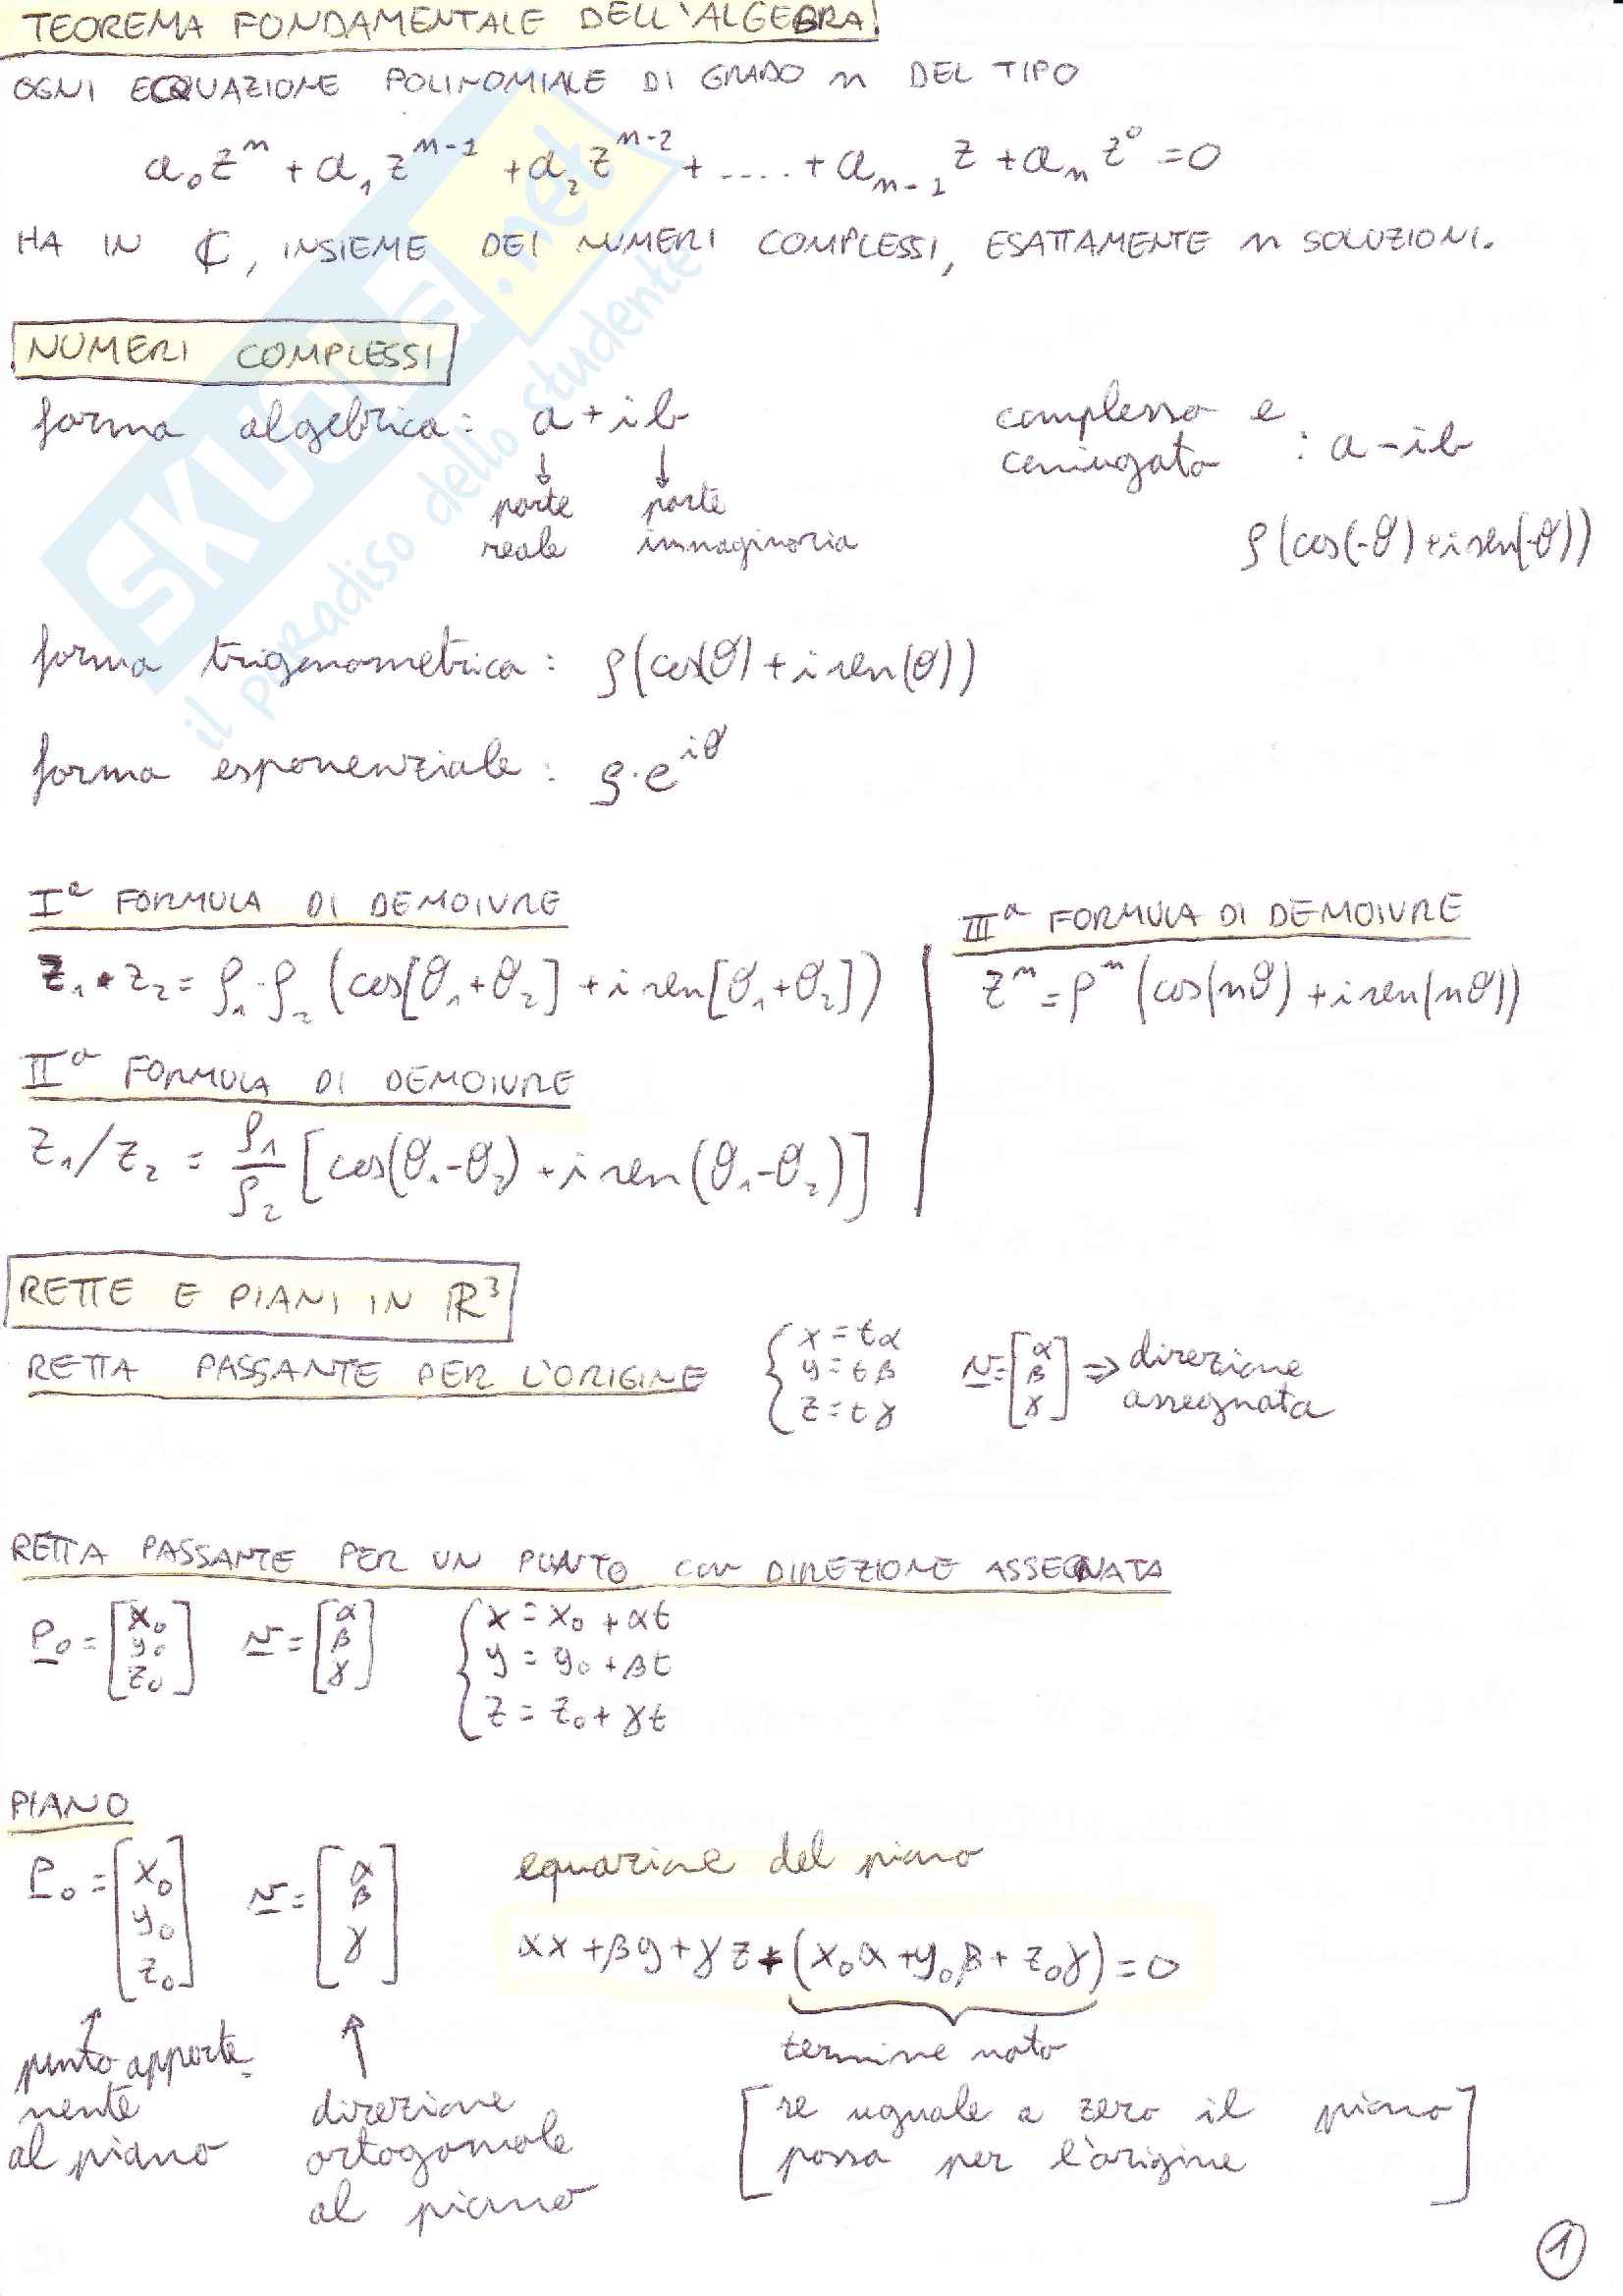 TEOREMA FONDAMENTALE DELL'ALGEBRA!
OGNI EQUAZIONE POLINOMIALE DI GRADO n DEL TIPO
a₀zⁿ + a₁zⁿ⁻¹ + a₂zⁿ⁻² + .... + aₙ₋₁z + aₙz⁰ = 0
HA IN ℂ, INSIEME DEI NUMERI COMPLESSI, ESATTAMENTE n SOLUZIONI.
NUMERI COMPLESSI
forma algebrica: a+ib
↓ ↓
parte parte
reale immaginaria
complesso e
coniugato : a-ib
ρ(cos(-θ)+isen(-θ))
forma trigonometrica: ρ(cos(θ)+isen(θ))
forma esponenziale: ρ·e^{iθ}
Iª FORMULA DI DEMOIVRE
z₁·z₂ = ρ₁·ρ₂ (cos[θ₁+θ₂] + isen[θ₁+θ₂])
IIª FORMULA DI DEMOIVRE
z₁/z₂ = ρ₁/ρ₂ [cos(θ₁-θ₂) + isen(θ₁-θ₂)]
IIIª FORMULA DI DEMOIVRE
zⁿ = ρⁿ (cos(nθ) + isen(nθ))
RETTE E PIANI IN ℝ³
RETTA PASSANTE PER L'ORIGINE { x=tα
y=tβ
z=tγ
v=[α β γ] ⇒ direzione
assegnata
RETTA PASSANTE PER UN PUNTO con DIREZIONE ASSEGNATA
P₀=[x₀ y₀ z₀] v=[α β γ] { x = x₀ + αt
y = y₀ + βt
z = z₀ + γt
PIANO
P₀=[x₀ y₀ z₀] v=[α β γ]
↑
punto apparte-
nente
al piano
↑
direzione
ortogonale
al piano
equazione del piano
αx + βy + γz + (x₀α + y₀β + z₀γ) = 0
termine noto
[se uguale a zero il piano
passa per l'origine]
1
SKUOLA.net
il paradiso dello studente